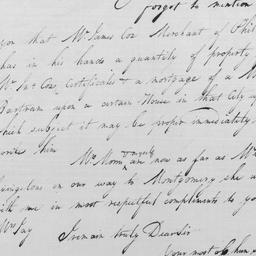 forgot to mention
you that Mr. James Cox Merchant of Phil
has in his hands a quantity of property
Mr. Jas Cox Certificates & a mortgage of a Mr
Bartram upon a certain House in that City up
which subject it may be proper immediately
write him
Mrs. Morris & myself are now as far as Mr
Livingstons on our way to Montgomery she u
with me in most respectful compliments to yo
Mrs Jay
I remain truly Dear Sir
Your most ob hum